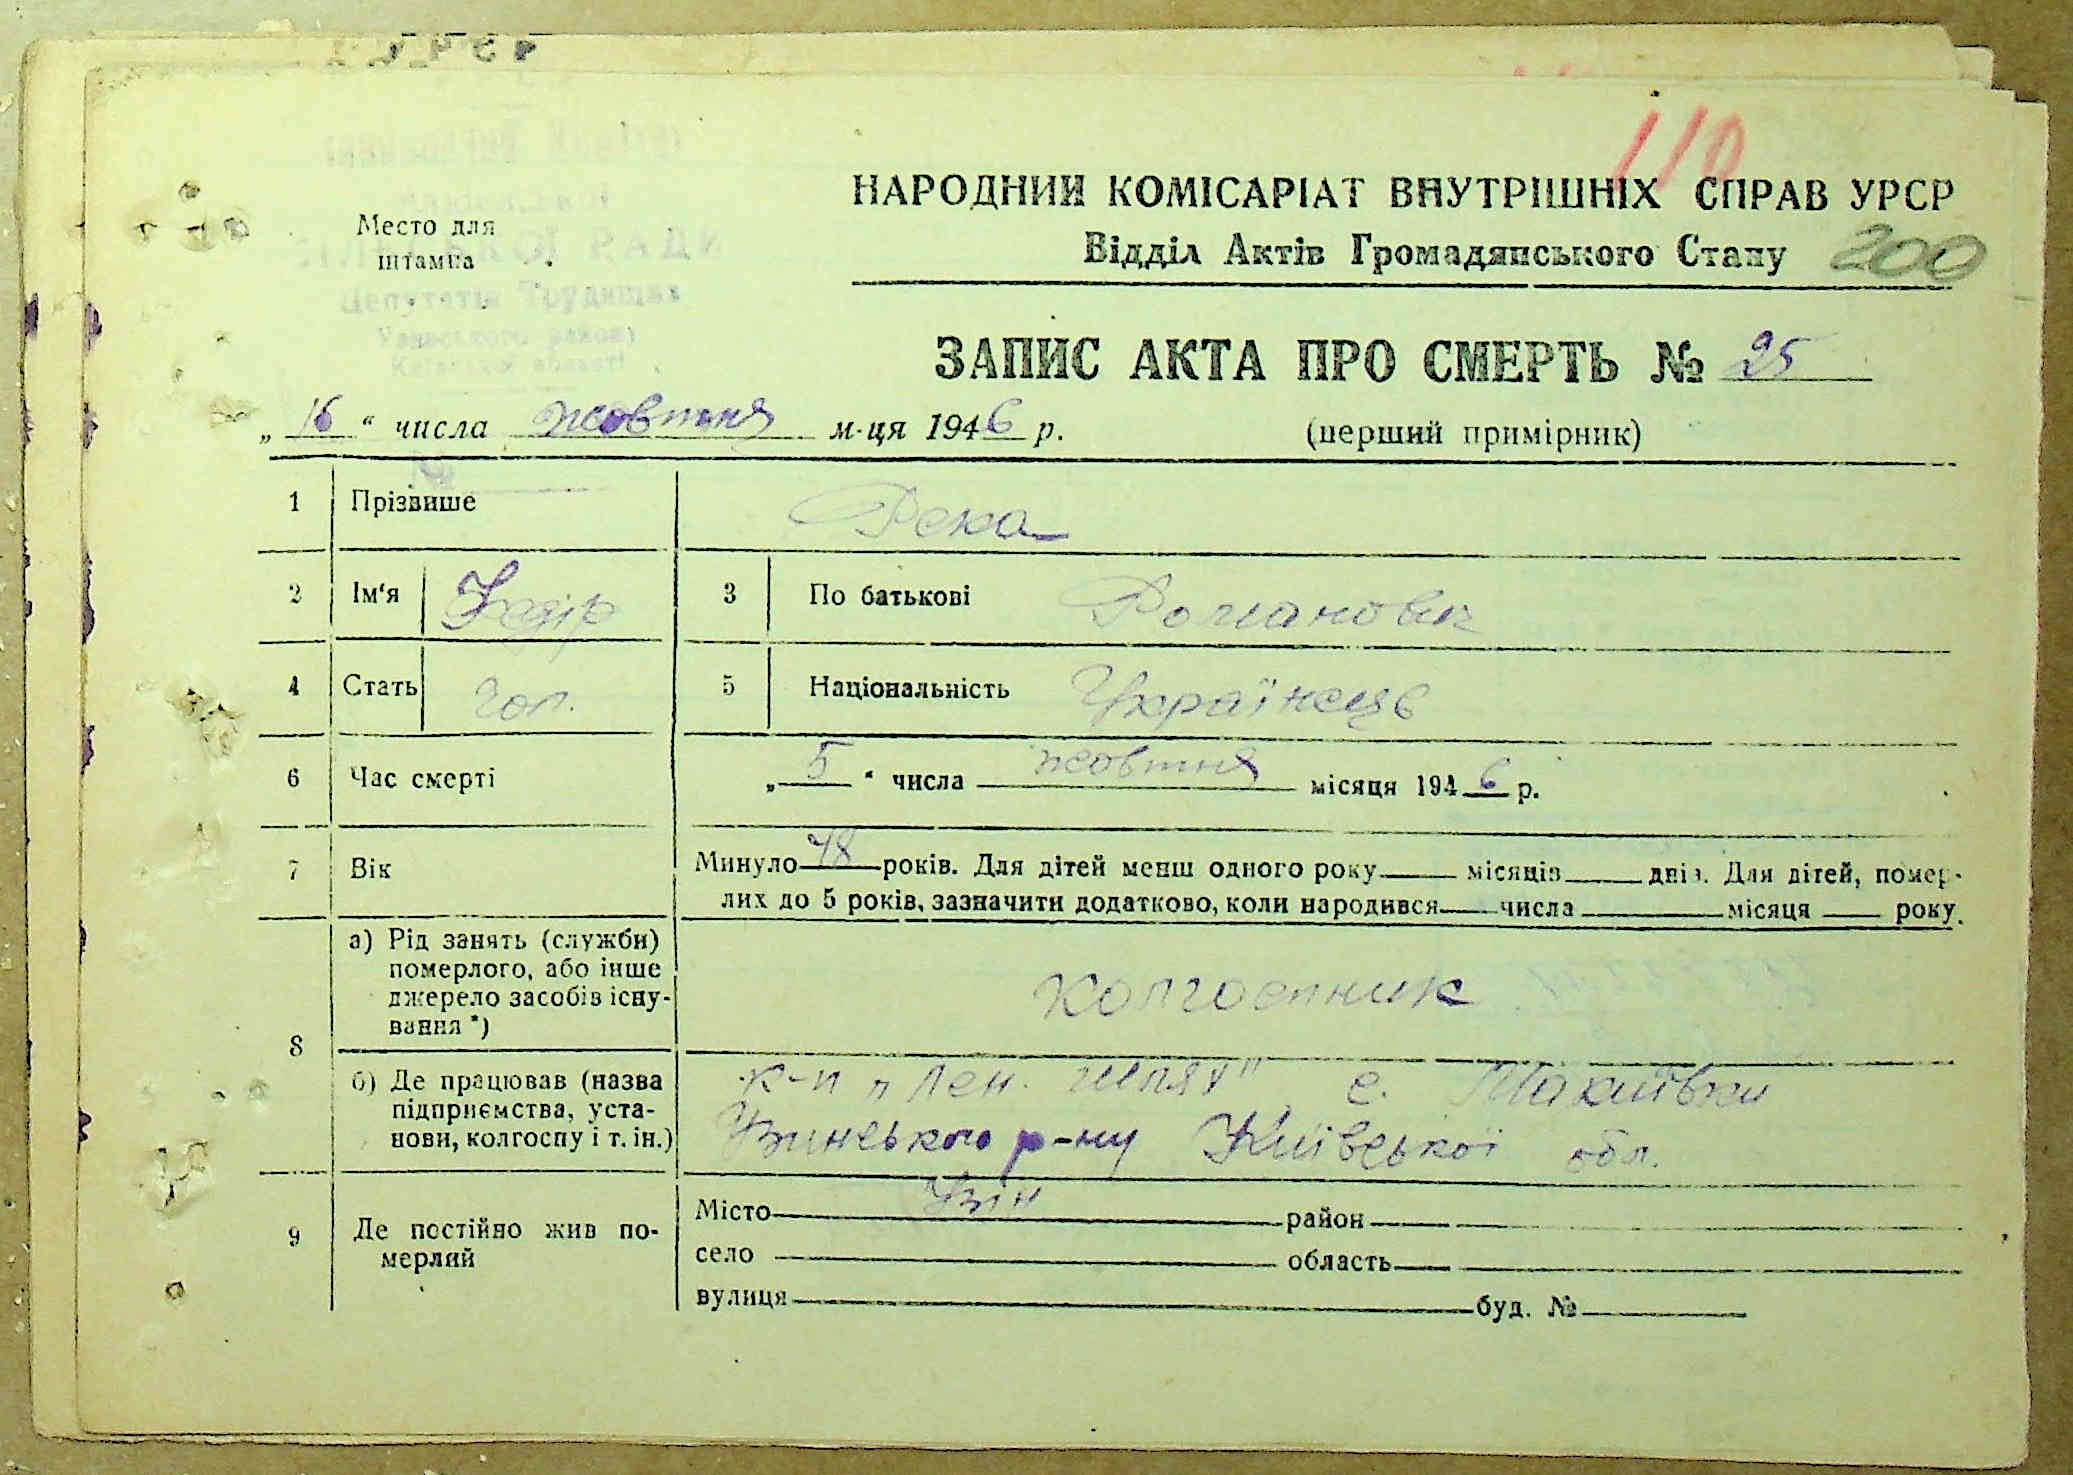 110
НАРОДНИЙ КОМІСАРІАТ ВНУТРІШНІХ СПРАВ УРСР
Место для
штампа
Відділ Актів Громадянського Стану 200
СІЛЬСЬКОЇ РАДИ
Депутатів Трудящих
Узинського району
Київської області
ЗАПИС АКТА ПРО СМЕРТЬ № 25
„ 16 “ числа жовтня м-ця 1946 р.
(перший примірник)
№
1 Прізвище Река
2 Ім'я Федір 3 По батькові Романович
4 Стать чол. 5 Національність Українець
6 Час смерті „ 5 “ числа жовтня місяця 1946 р.
7 Вік Минуло 48 років. Для дітей менш одного року місяців днів. Для дітей, помер-
лих до 5 років, зазначити додатково, коли народився числа місяця року.
8 а) Рід занять (служби)
померлого, або інше
джерело засобів існу-
вання *)
колгоспник
б) Де працював (назва
підприємства, уста-
нови, колгоспу і т. ін.)
к-п „Лен. шлях" с. Макиївки
Узинського р-ну Київської обл.
9 Де постійно жив по-
мерлий
Місто Узін район
село область
вулиця буд. №